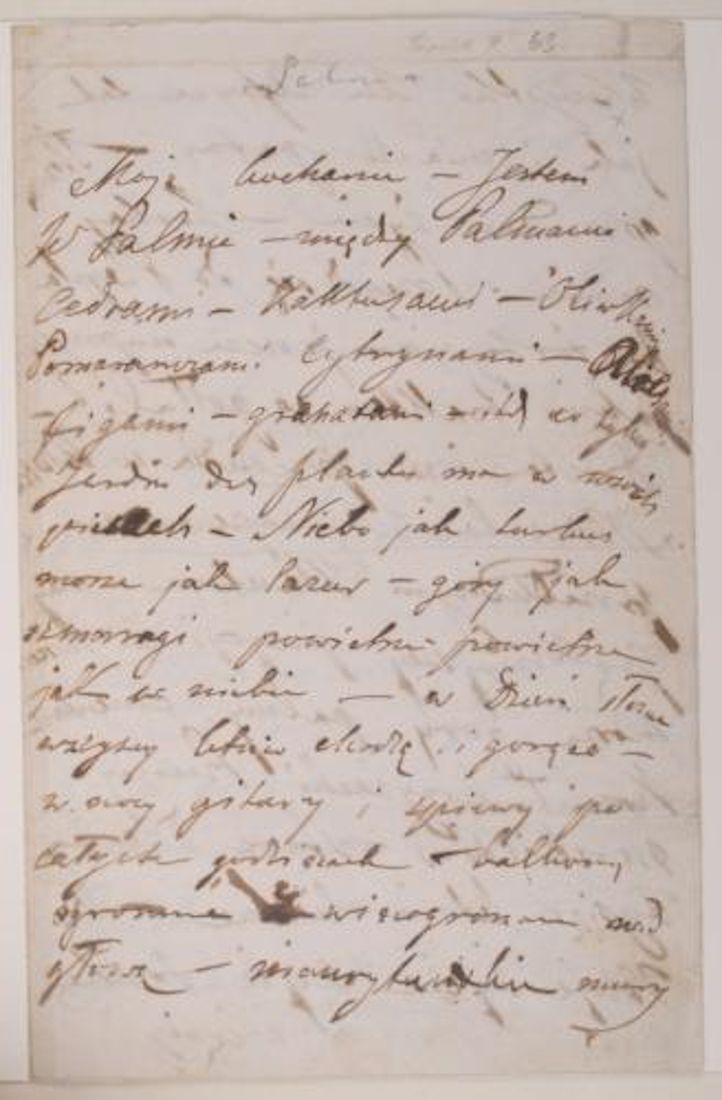 63
Moje kochanie – Jestem
w Palmie – między Palmami
Cedrami – Kaktusami – Oliwkami
Pomarańczami Cytrynami – Aloesami
figami – granatami itd co tylko
Jardin des plantes ma w swoich
piecach – Niebo jak turkus
morze jak lazur – góry jak
szmaragi – powietrze powietrze
jak w niebie – w Dzień słońce
wszyscy letnio chodzą i gorąco –
w nocy gitary i śpiewy po
całych godzinach – balkony
ogromne z winogronami nad
głową – maurytańskie mury